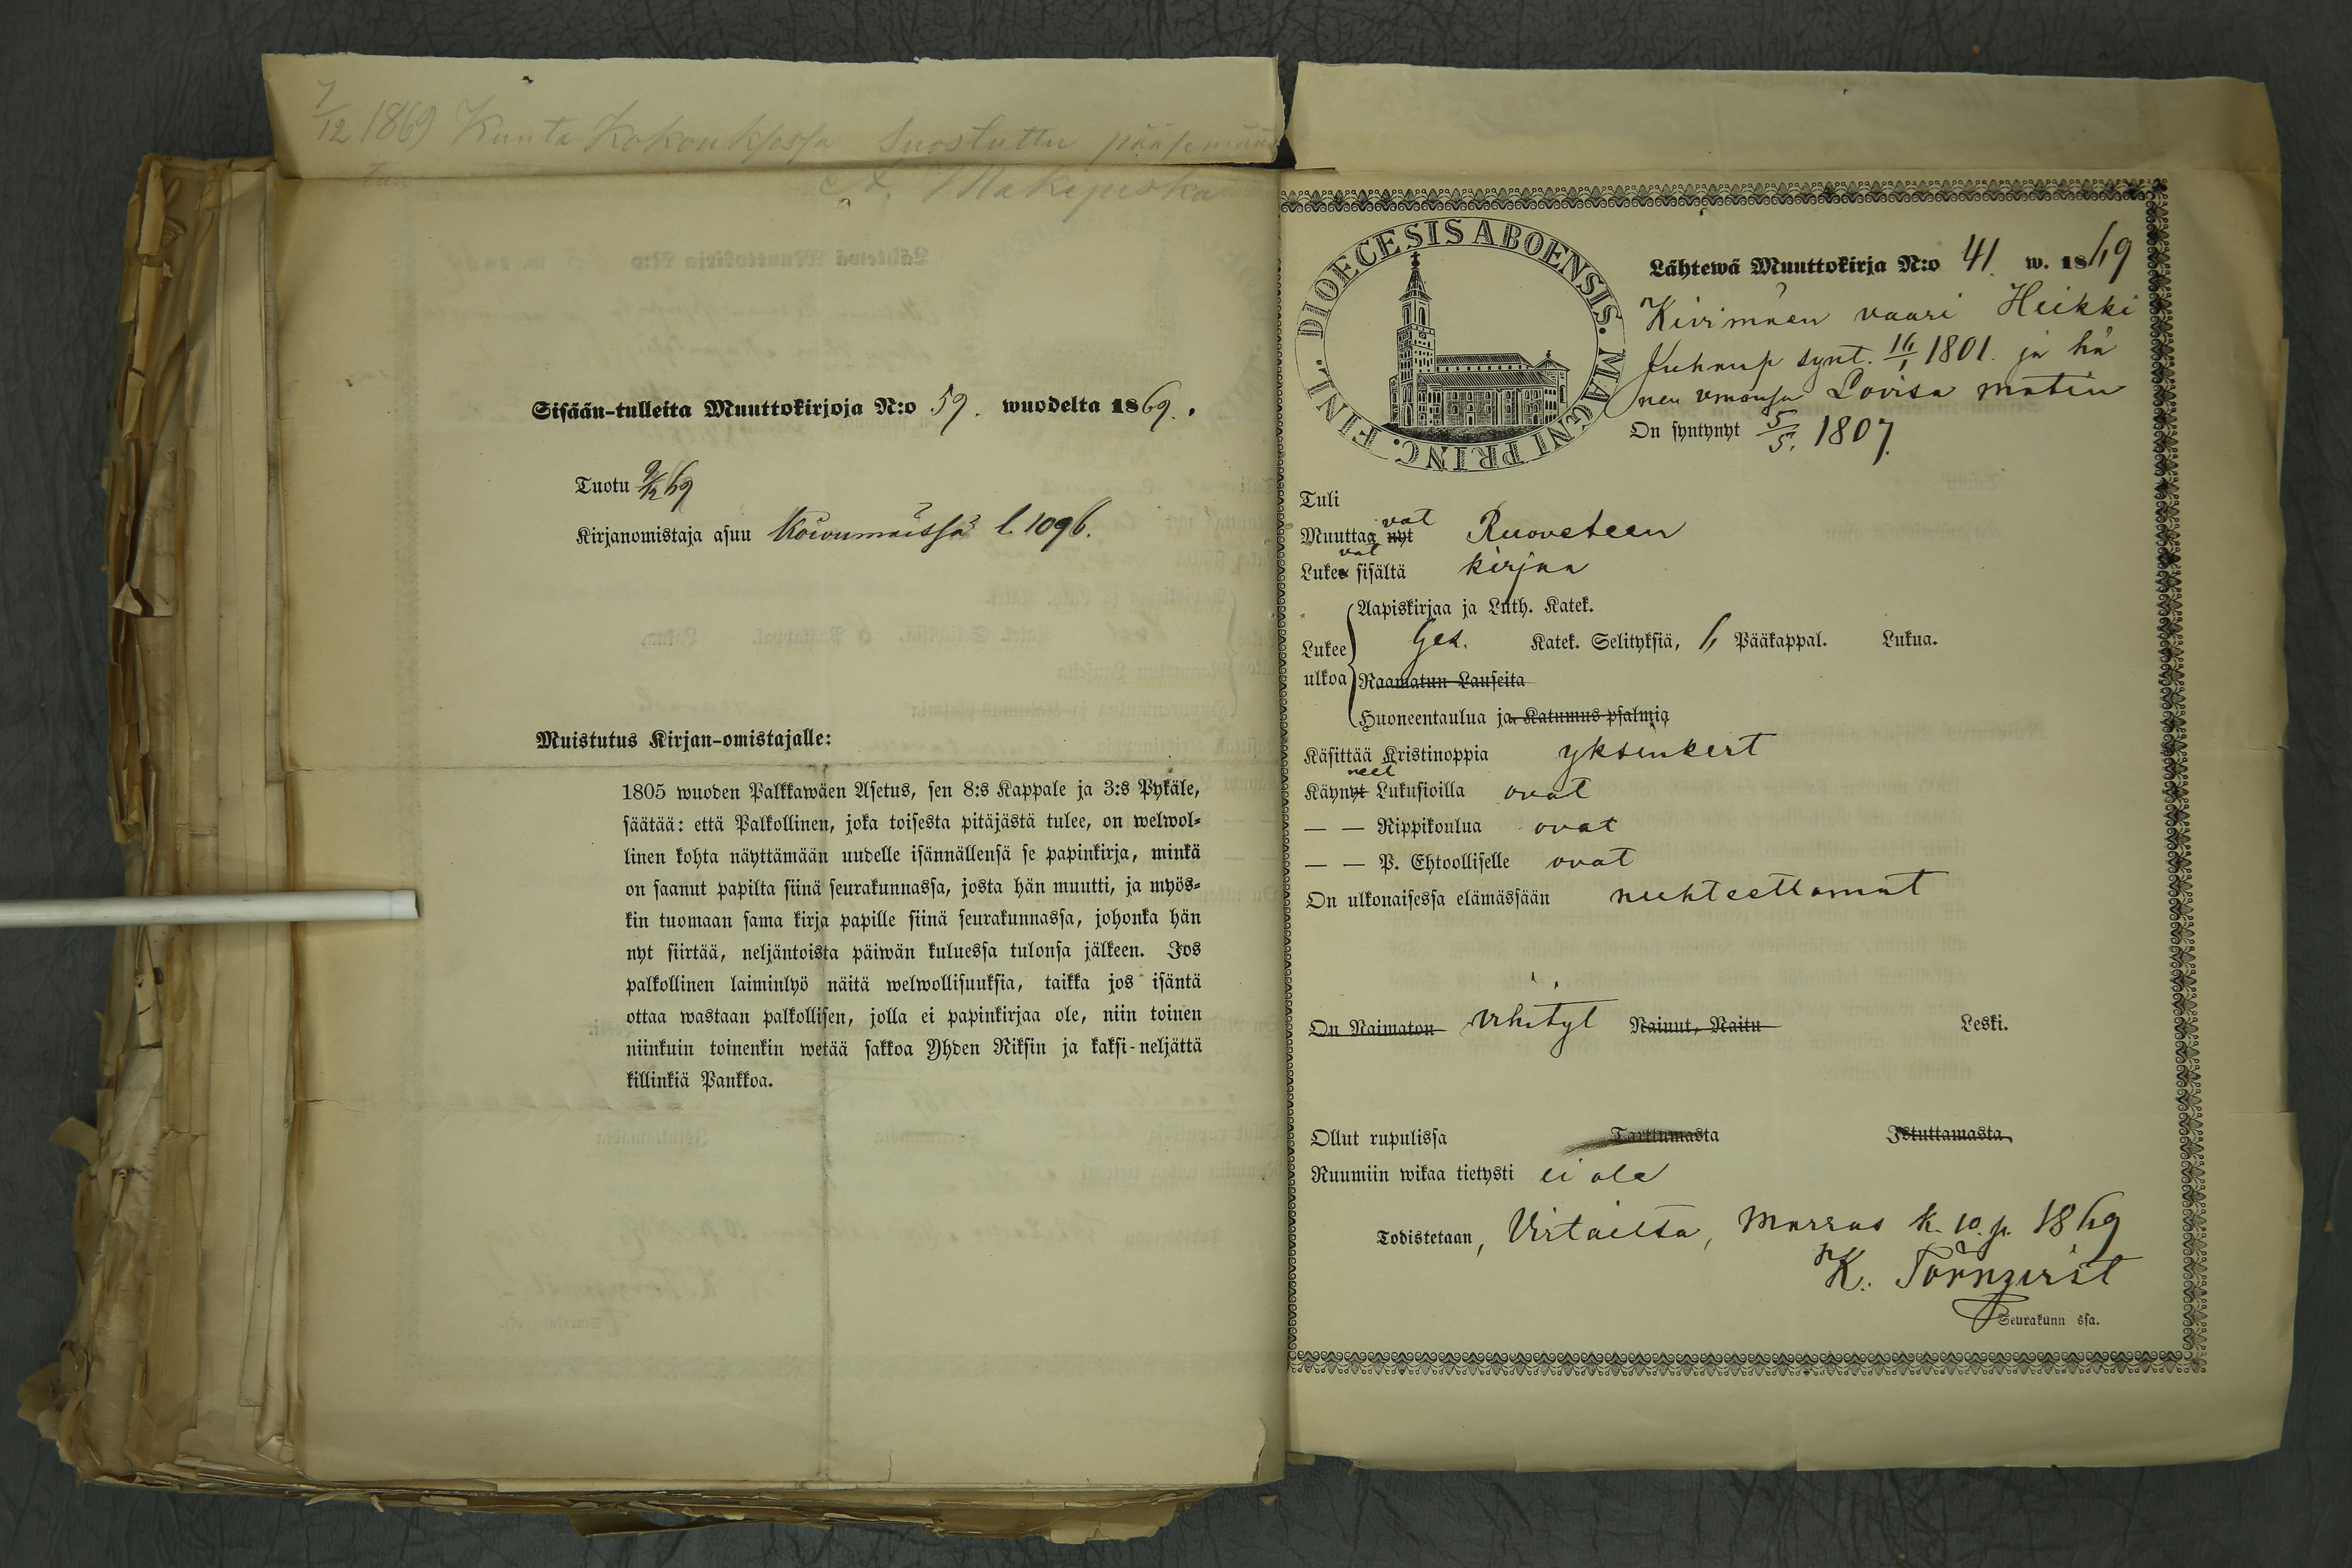 7/12 1869 Kunta Kokouksessa suostuttu pääsemään
Sisään-tulleita Muuttokirjoja N:o 59. wuodelta 1869.
Tuotu 9/12 69
Kirjanomistaja asuu Koivumäissä l. 1096.
Muistutus Kirjan-omistajalle:
1805 wuoden Palkkawäen Asetus, sen 8:s Kappale ja 3:s Pykäle,
säätää: että Palkollinen, joka toisesta pitäjästä tulee, on welwol-
linen kohta näyttämään uudelle isännällensä se papinkirja, minkä
on saanut papilta siinä seurakunnassa, josta hän muutti, ja myös-
kin tuomaan sama kirja papille siinä seurakunnassa, johonka hän
nyt siirtää, neljäntoista päiwän kuluessa tulonsa jälkeen. Jos
palkollinen laiminlyö näitä welwollisuuksia, taikka jos isäntä
ottaa wastaan palkollisen, jolla ei papinkirjaa ole, niin toinen
niinkuin toinenkin wetää sakkoa Yhden Riksin ja kaksi-neljättä
killinkiä Pankkoa.
DIOECESIS ABOENSIS. MAGNI PRINC. FINL.
Lähtewä Muuttokirja N:o 41. w. 1869
Kivimäen vaari Heikki
Juhanp synt. 16/1 1801. ja hä
nen vmonsa Lovisa Matin
On syntynyt 5/5. 1807.
Tuli
Muuttaa nyt vat Ruoveteen
Lukee vat sisältä kirjaa
Aapiskirjaa ja Luth. Katek.
Lukee Katek. Selityksiä, 6 Pääkappal. Lukua.
ulkoa Raamatun Lauseita
Huoneentaulua ja Katumus psalmia
Käsittää Kristinoppia yksinkert
Käynyt neet Lukusioilla ovat
— — Rippikoulua ovat
— — P. Ehtoolliselle ovat
On ulkonaisessa elämässään nuhteettomat
On Naimaton vihityt Nainut, Naitu Leski.
Ollut rupulissa Tarttumasta Istuttamasta
Ruumiin wikaa tietysti ei ole
Todistetaan, Virtailta, Marras k. 10. p. 1869
K. Törnqvist
Seurakunn ssa.